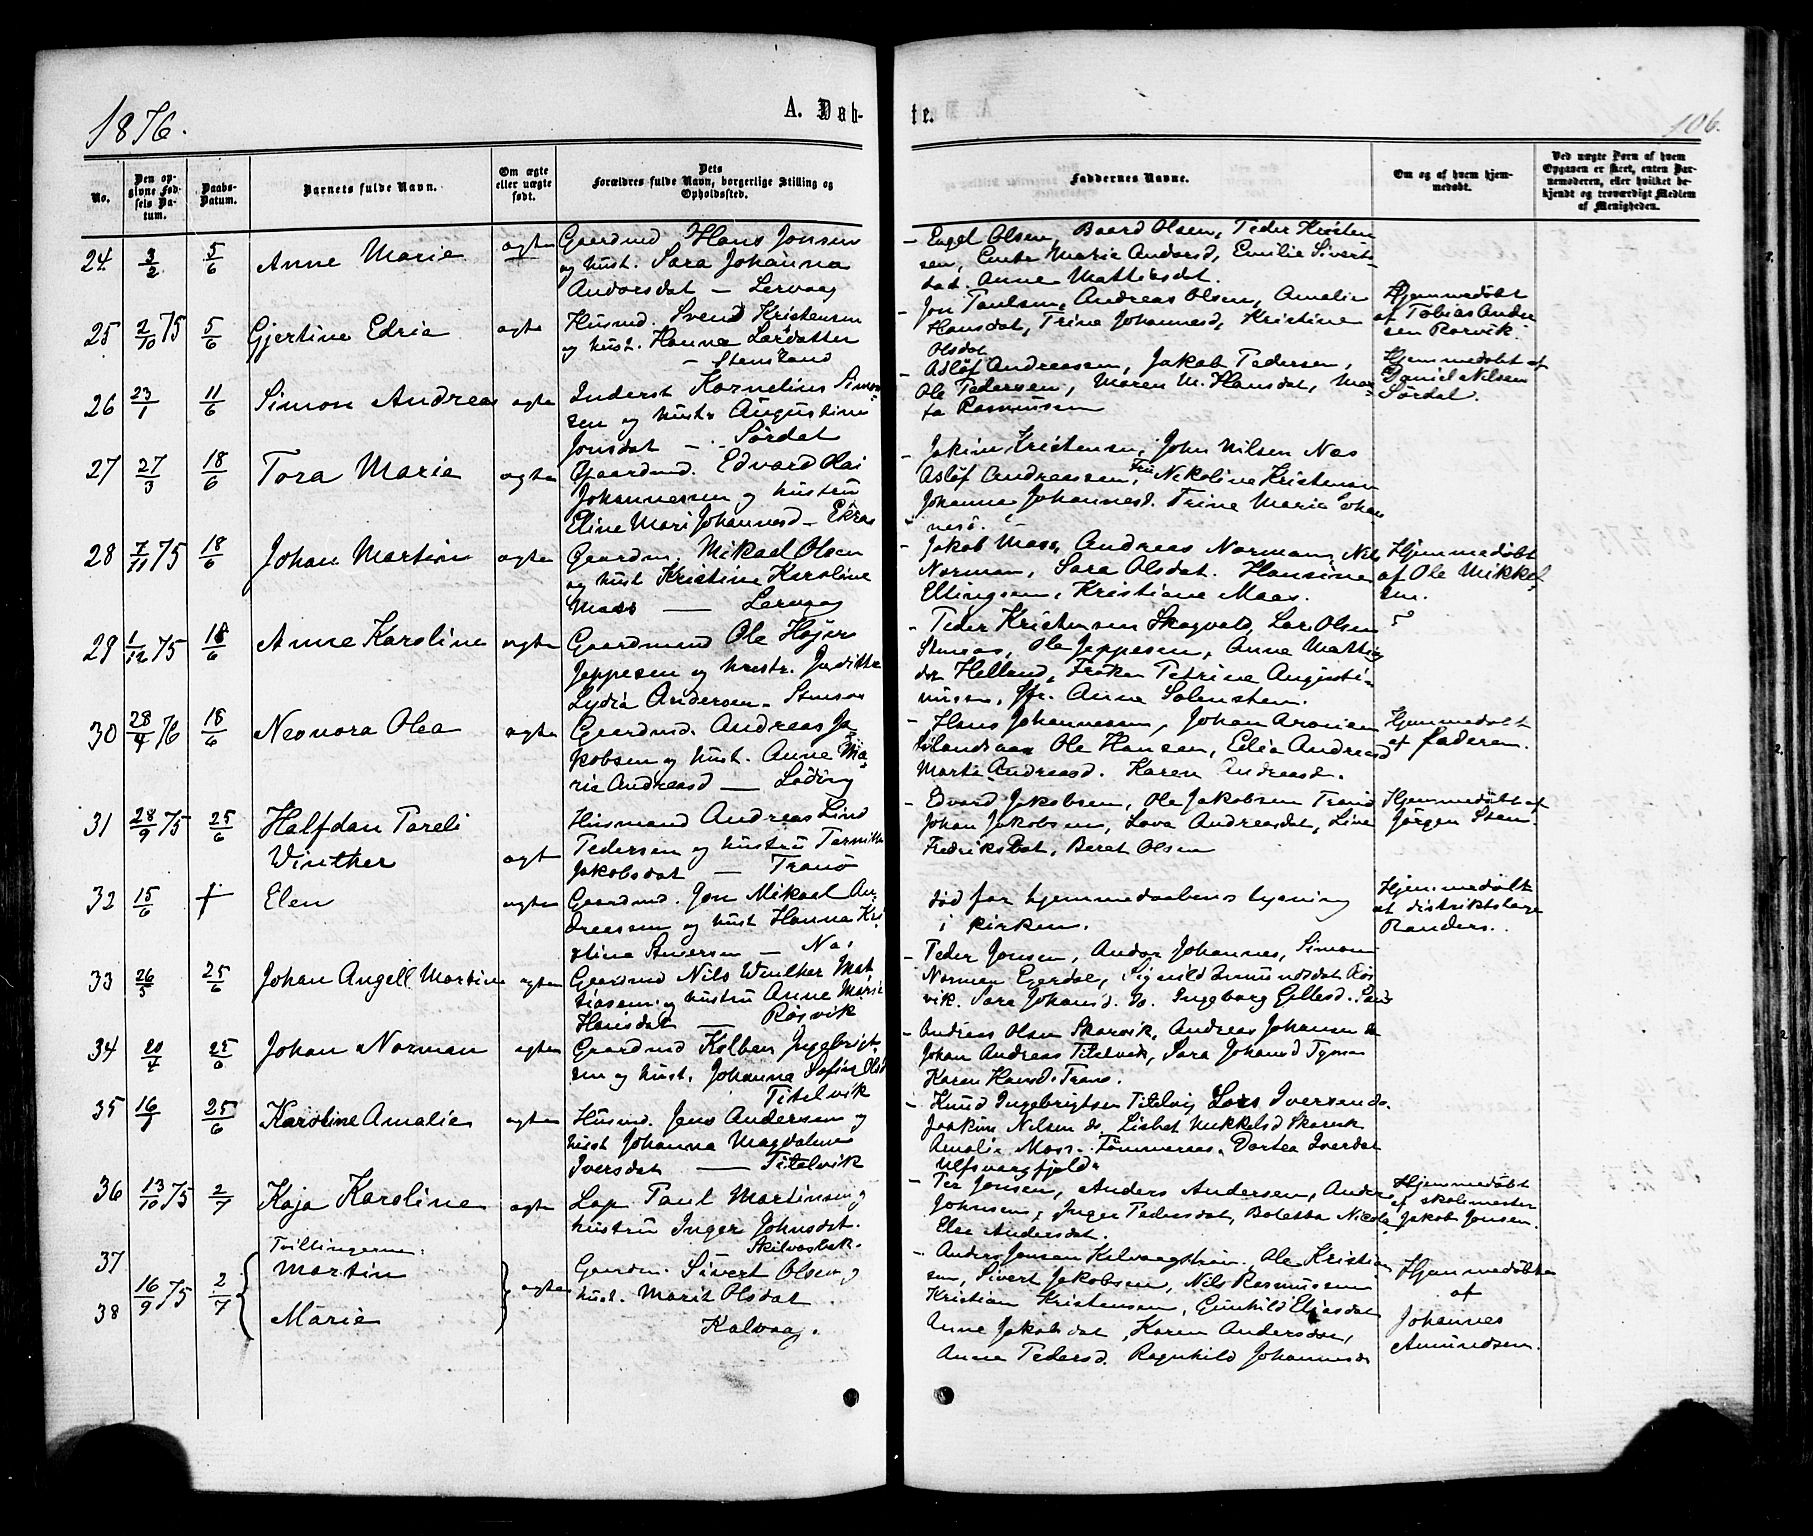 1876.
A. Døb-
te.
106.
No.
Den op-
givne Fød-
sels Da-
tum.
Daabs-
Datum.
Barnets fulde Navn.
Om ægte
eller uægte
født.
Dets
Forældres fulde Navn, borgerlige Stilling og
Opholdssted.
Faddernes Navne.
Om og af hvem hjem-
medøbt.
Ved uægte Børn af hvem
Opgaven er skeet, enten Bar-
nemoderen, eller hvilket be-
kjendt og troværdigt Medlem
af Menigheden.
24 3/2 5/6 Anne Marie ægte
Gaardmd Hans Jonsen
og hust. Sara Johanna
Andorsdat - Lervaag
- Engel Olsen, Baard Olsen, Peder Kristen
sen, Marie Andorsd, Emilie Siverts
dat. Anne Mattisdat.
25 2/10 75 5/6 Gjertine Edria ægte
Husmd. Svend Kristensen
og hust. Hanna Larsdatter
- Stensland
- Jon Paulsen, Andreas Olsen, Amalie
Hansdat, Trine Johannesd, Kristine
Olsdat
Hjemmedøbt
af Tobias Andre
sen Rørvik.
26 23/1 11/6 Simon Andreas ægte
Inderst Kornelius Simon
sen og hustr Augustine
Jonsdat - Sørdal
- Asløf Andreassen, Jakob Pedersen,
Ole Pedersen, Maren M. Hansdat, Mar-
ta Rasmussen
Hjemmedøbt af
Daniel Nilsen
Sørdal.
27 27/3 18/6 Tora Marie ægte
Gaardmd. Edvard Kai
Johannessen og hustru
Eline Mari Johannesd - Eknæs
- Jakim Kristensen, John Nilsen Næs
Asløf Andreassen, Fru Nikoline Kristensen
Johanna Johannesd. Trine Marie Johan
nesd.
28 7/11 75 18/6 Johan Martin ægte
Gaardm. Mikael Olsen
og hust Kristine Karoline
Maas - Lervaag
- Jakob Maas, Andreas Norman, Nils
Norman, Sara Olsdat. Hansine
Ellingsen, Kristiane Maas.
Hjemmedøbt
af Ole Mikkel
sen.
29 1/12 75 18/6 Anne Karoline ægte
Gaardmand Ole Højer
Jeppesen og hustr. Judithe
Lydia Andersen - Stensaas
- Peder Kristensen Skogvold, Lars Olsen
Stensaas, Ole Jeppesen, Anne Mattis
dat Helland, Frøken Petrine Augusti-
nussen, Jfr. Anne Solensten.
30 28/4 76 18/6 Neonora Olea ægte
Gaardmd. Andreas Ja
kobsen og hust. Anne Ma-
rie Andreasd - Løding
- Hans Johannessen, Johan Aronsen
Ole Hansen, Edia Andreasd
Marta Andreasd. Karen Andreasd.
Hjemmedøbt
af faderen.
31 28/9 75 25/6 Halfdan Pareli
Vinther ægt
Husmand Andreas Lind
Pedersen og hustru
Jakobsdat - Tranø
- Edvard Jakobsen, Ole Jakobsen Tranø
Johan Jakobsen, Lova Andreasdat, Line
Fredriksdat, Beret Olsen
Hjemmedøbt af
Jørgen Sten
32 15/6 † Elen ægten
Gaardmd. Jon Mikael An-
dreasen og hust Hanna Kri
stine Siversen - Næs
død før hjemmedaabens lysning
i kirken.
Hjemmedøbt
af distriktslæge
Randers.
33 26/5 25/6 Johan Angell Martin ægten
Gaardmd Nils Winther Mat
tiasen og hustru Anne Marie
Hansdat - Røsvik
- Peder Jonsen, Andor Johannes, Simon
Norman Egerdal, Signild Amundsdat Røs
vik. Sara Johansd. do. Ingeborg Gellesd.
34 20/4 25/6 Johan Norman ægten
Gaardmd Kolben Ingebrigt-
sen og hust. Johanna Sofie Olsd
Titelvik
- Andreas Olsen Skarvik, Andreas Johansen do
Johan Andreas Titelvik, Sara Johansd
Karen Hansd. Tranø.
35 16/1 25/6 Karoline Amalie ægten
Husmd. Jens Andersen og
hust Johanna Magdalene
Iversdat - Titelvik
- Knud Ingebrigtsen Titelvig Lars Iversen do.
Joakim Nilsen do Lisbet Mikkelsd Skarvik
Amalie Moss. Tømmeraas. Dortea Iverdat
Ulfsvaagfjeld.
36 13/10 75 2/7 Kaja Karoline ægte
Lap Paul Martinsen og
hustru Inger Johnsdat.
Skilvasbak.
- Per Jonsen, Anders Andersen, Anders
Johnsen, Inger Pedersdat, Boletta Nicols,
Else Andersdat.
Hjemmedøbt
af skolemester
Jakob Jonsen.
37
38 16/9 75 2/7
Tvillingerne:
Martin
Marie
ægten
Gaardm. Sivert Olsen og
hust. Marit Olsdat
Kalvaag.
- Anders Jensen Kalvaagstrøm. Ole Kristian
sen, Sivert Jakobsen, Nils Rasmussen
Kristian Kristensen, Gunhild Eliasdat
Anne Jakobsdat, Karen Andersdat,
Anna Pedersd. Ragnhild Johannesd
Hjemmedøbte
af
Johannes
Amundsen.